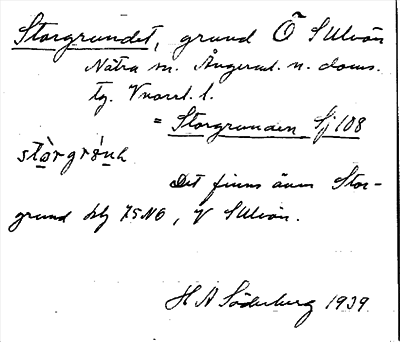 Storgrundet, grund Ö S Ulvön
Nätra sn. Ångerml. n. doms.
tg. Vnorrl. l.
= Storgrunden Sj 108
stòrgrúnh
Det finns även Stor-
grund blg 75NO, V S Ulvön.
H A Söderberg 1939